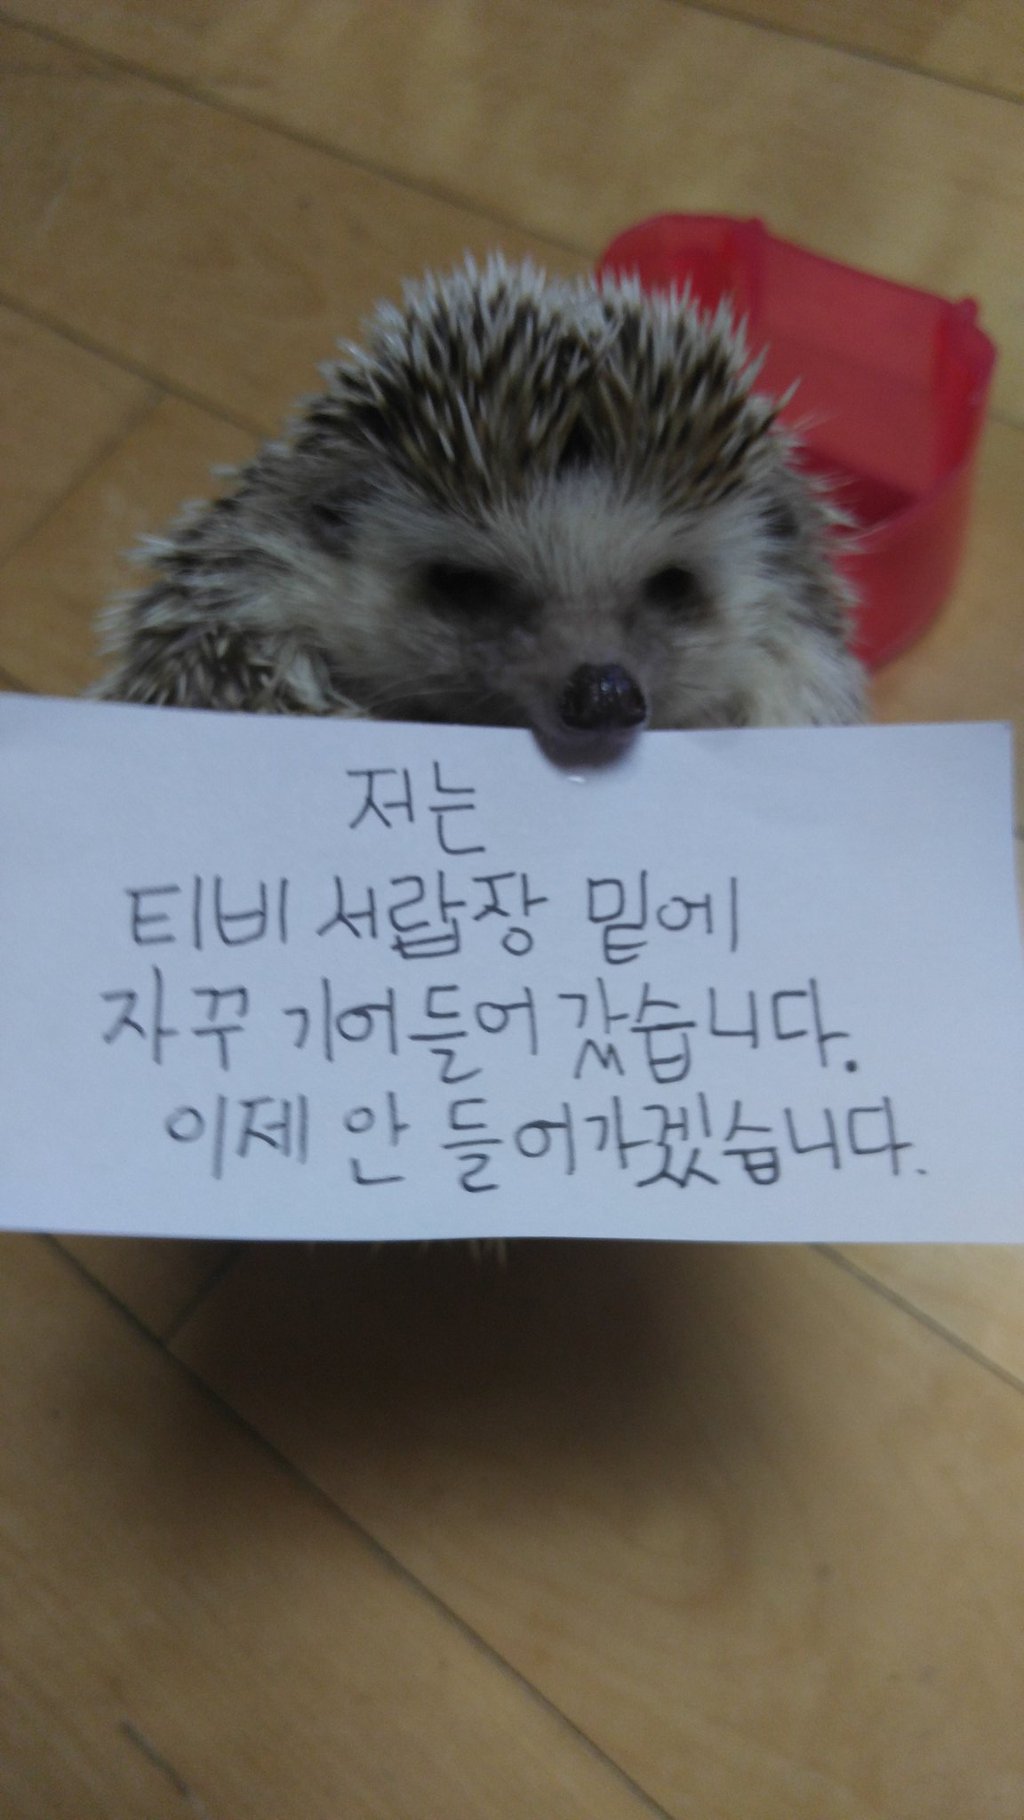 저는
티비 서랍장 밑에
자꾸 기어들어 갔습니다.
이제 안 들어가겠습니다.